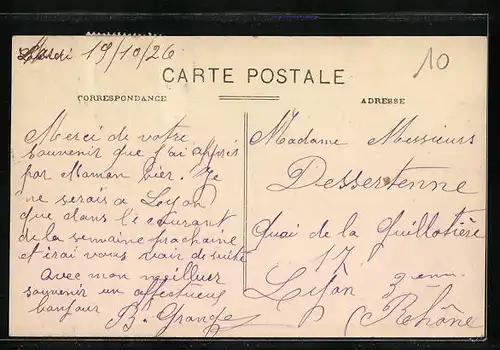 19/10/26
10
CARTE POSTALE
CORRESPONDANCE
ADRESSE
Merci de votre
souvenir que j'ai appris
par Maman hier. Je
ne serais a Lyon
que dans le courant
de la semaine prochaine
et irai vous voir de suite
avec mon meilleur
souvenir un affectueux
bonjour
B. Grange
Madame Messieurs
Dessertenne
Quai de la Guillotière
17
Lyon 3 em
(Rhône)